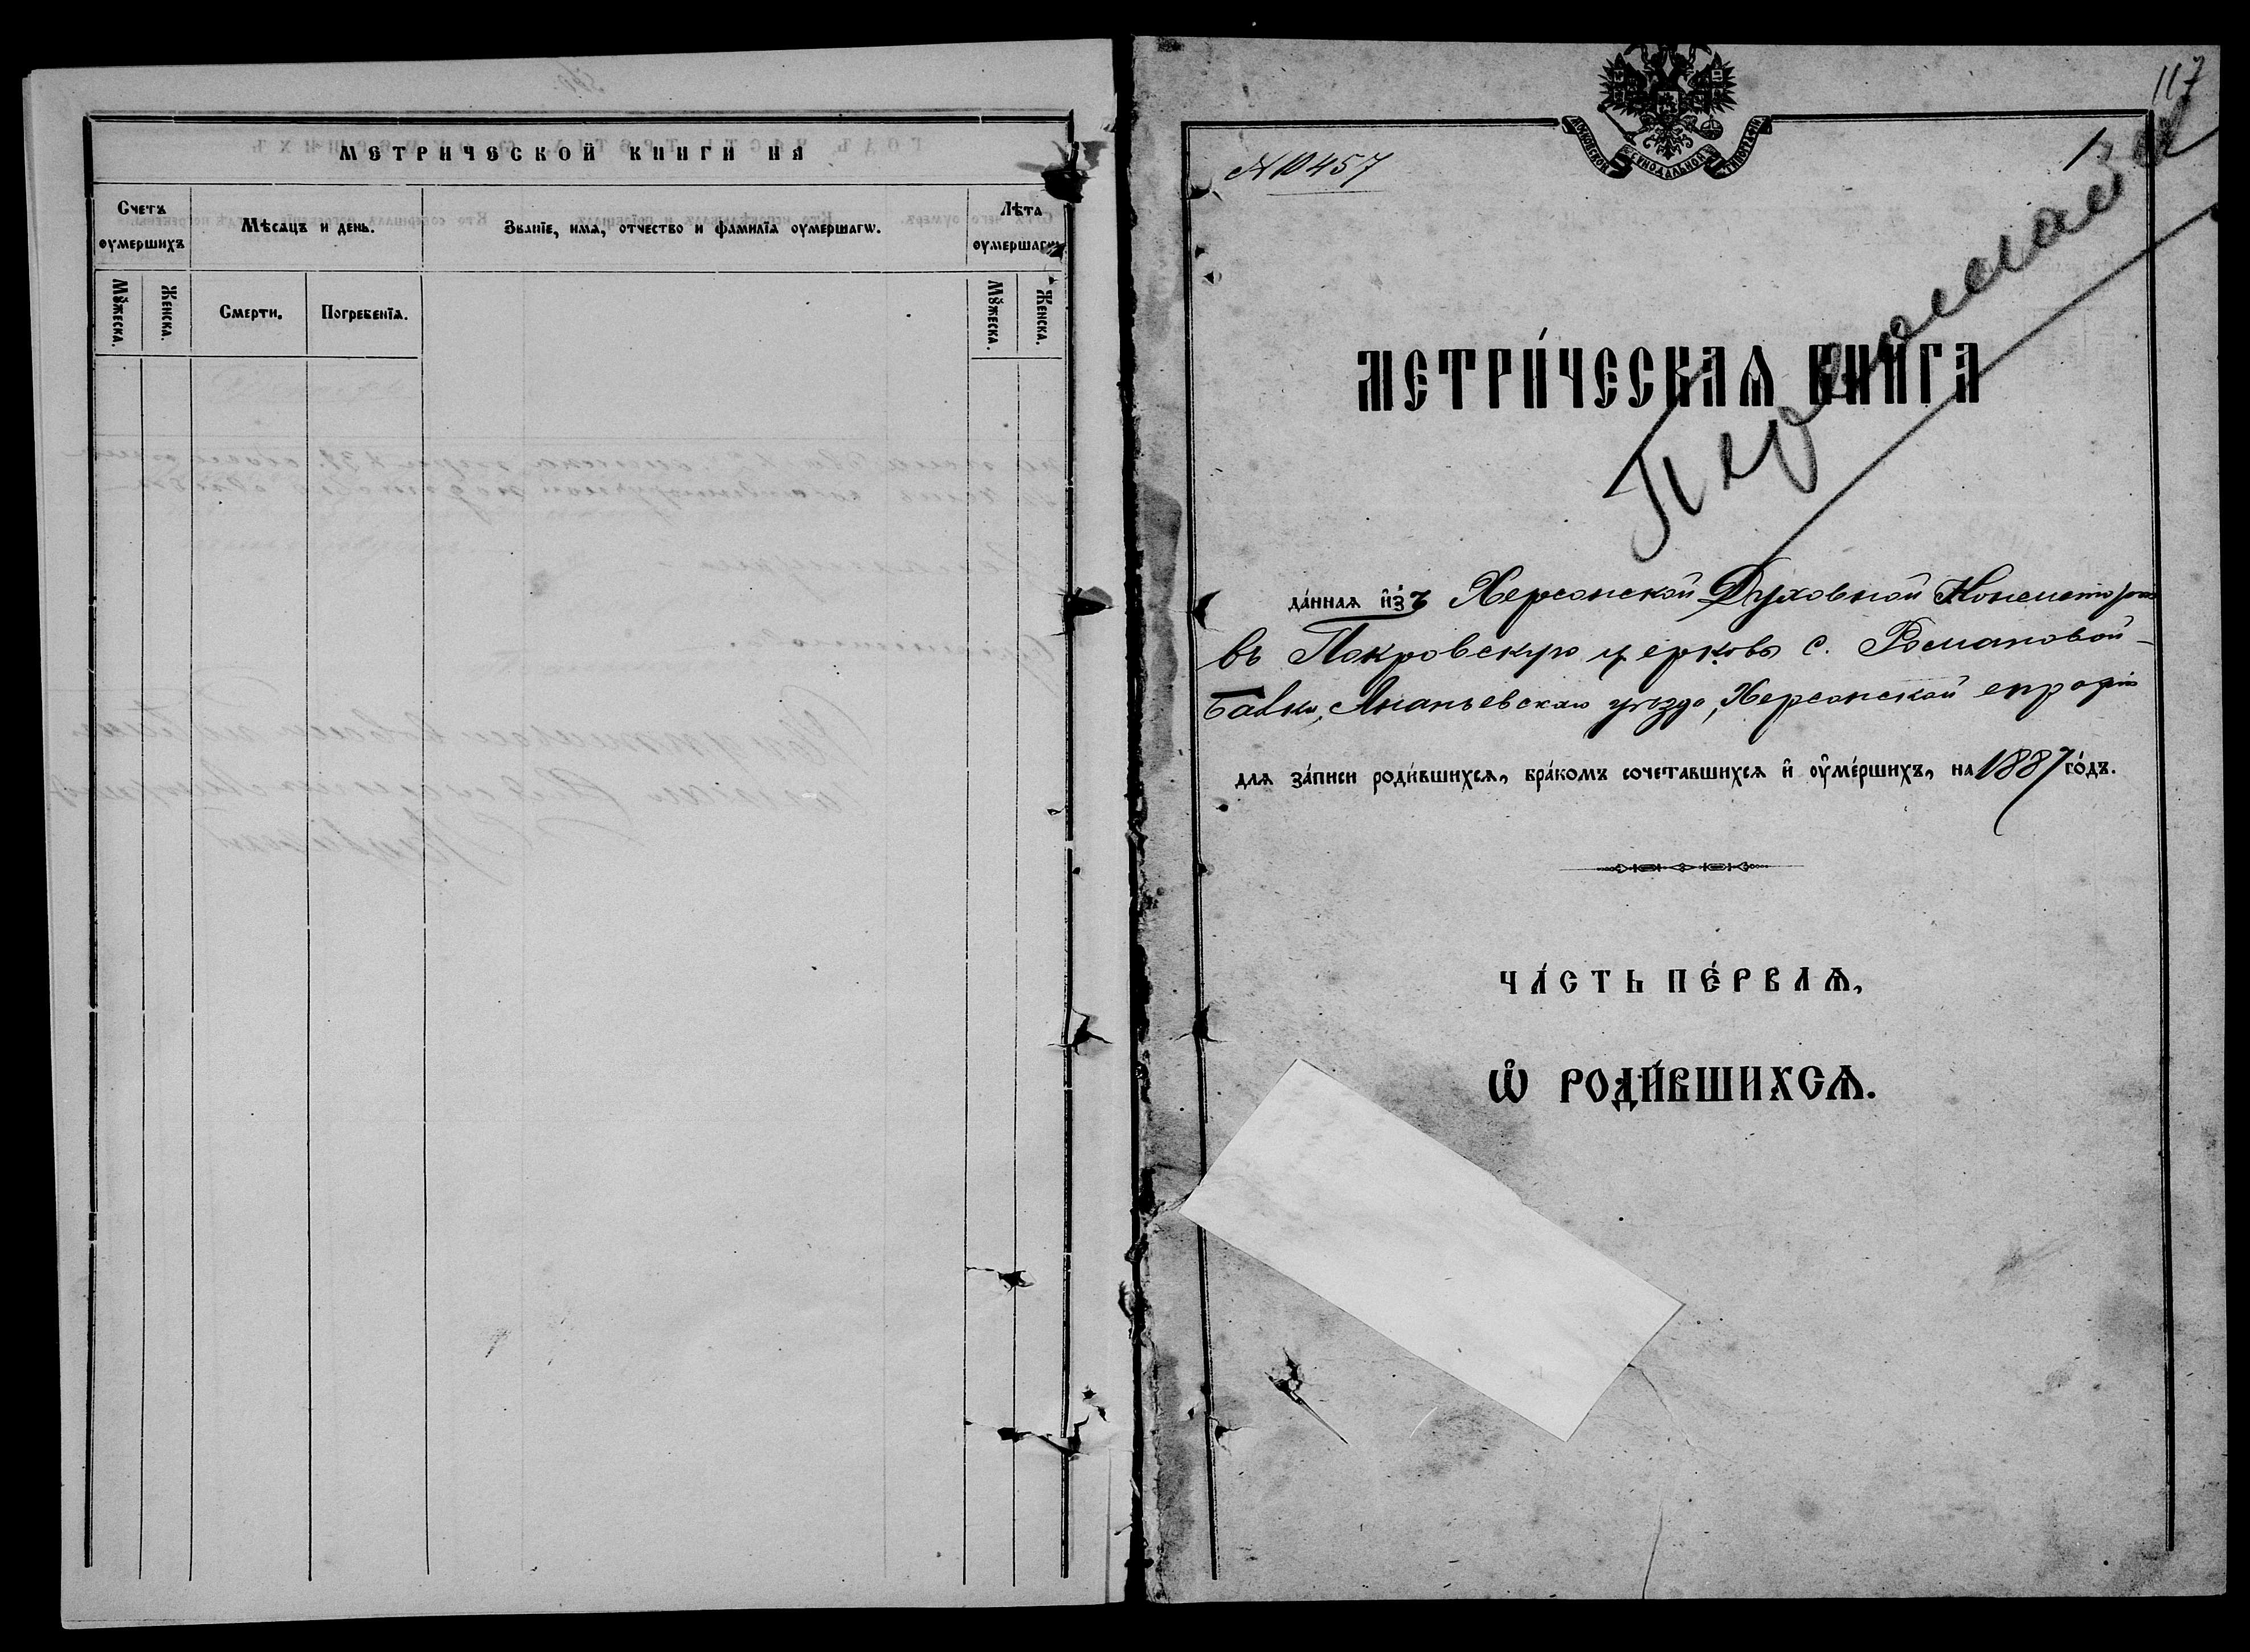 МЕТРИЧЕСКОЙ КНИГИ НА
Счетъ оумершихъ
Мѣсяцъ и день.
Званїе, имя, отчество и фамилїя оумершагѡ.
Лѣта оумершагѡ
Мꙋжеска.
Женска.
Смерти.
Погребенїя.
Мꙋжеска.
Женска.
117
1
МОСКОВСКОЙ СѴНОДАЛЬНОЙ ТИПОГРАФІИ
№ 10457
МЕТРИ́ЧЕСКАЯ КНИ́ГА
да́нная и҆зъ Херсонской Духовной Консисторіи
въ Покровскую церковь с. Романовой-
Балки, Ананьевскаго уѣзда, Херсонской епархіи
для за́писи роди́вшихся, бра́комъ сочетавшихся и҆ оу҆ме́ршихъ, на 1887 го́дъ.
ЧА́СТЬ ПЕ́РВАЯ,
Ѡ҆ РОДИ́ВШИХСЯ.